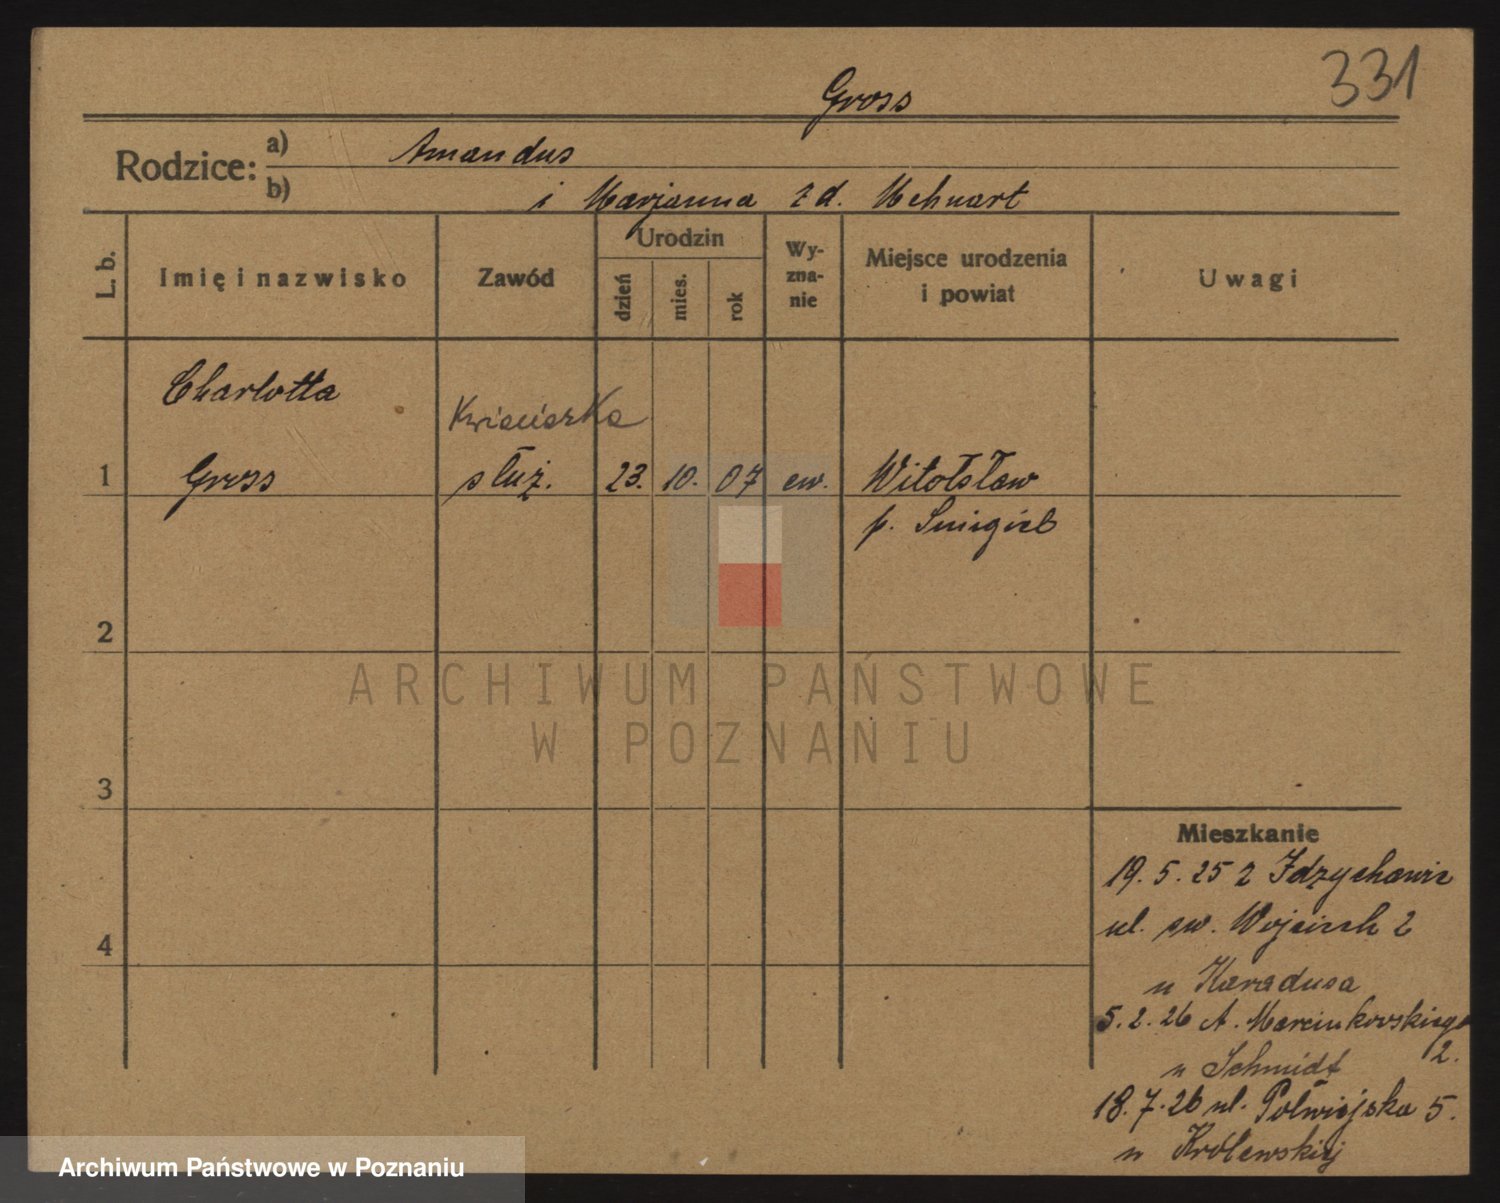 331
Gross
Rodzice: a) Amandus
b) i Marjanna z d.
L. b.
Imię i nazwisko
Zawód
Urodzin
dzień
mies.
rok
Wy-
zna-
nie
Miejsce urodzenia
i powiat
Uwagi
Charlotta
Kwiaciarka
1 Gross służ. 23. 10. 07 ew. Witosław
p. Śmigiel
2
3
4
ARCHIWUM PAŃSTWOWE
W POZNANIU
Mieszkanie
19. 5. 25 z
ul. św. Wojciech 2
u Karadusa
5. 2. 26 A. Marcinkowskiego
2.
u Schmidt
18. 7. 26 ul. Półwiejska 5.
u Królewskiej
Archiwum Państwowe w Poznaniu